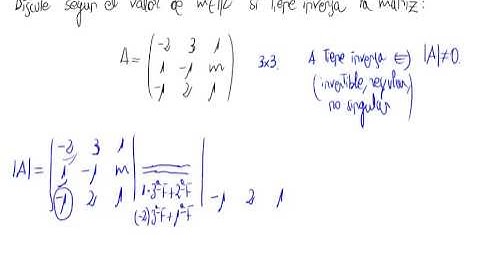 Discute según el valor de m∈ℝ si tiene inversa la matriz:
A = (-2 3 1
1 -1 m
-1 2 1) 3x3. A tiene inversa ⇔ |A|≠0.
(invertible, regular,
no singular)
|A| = |-2 3 1
1 -1 m
-1 2 1| 1·3ªF+2ªF | -1 2 1
(-2)3ªF+1ªF